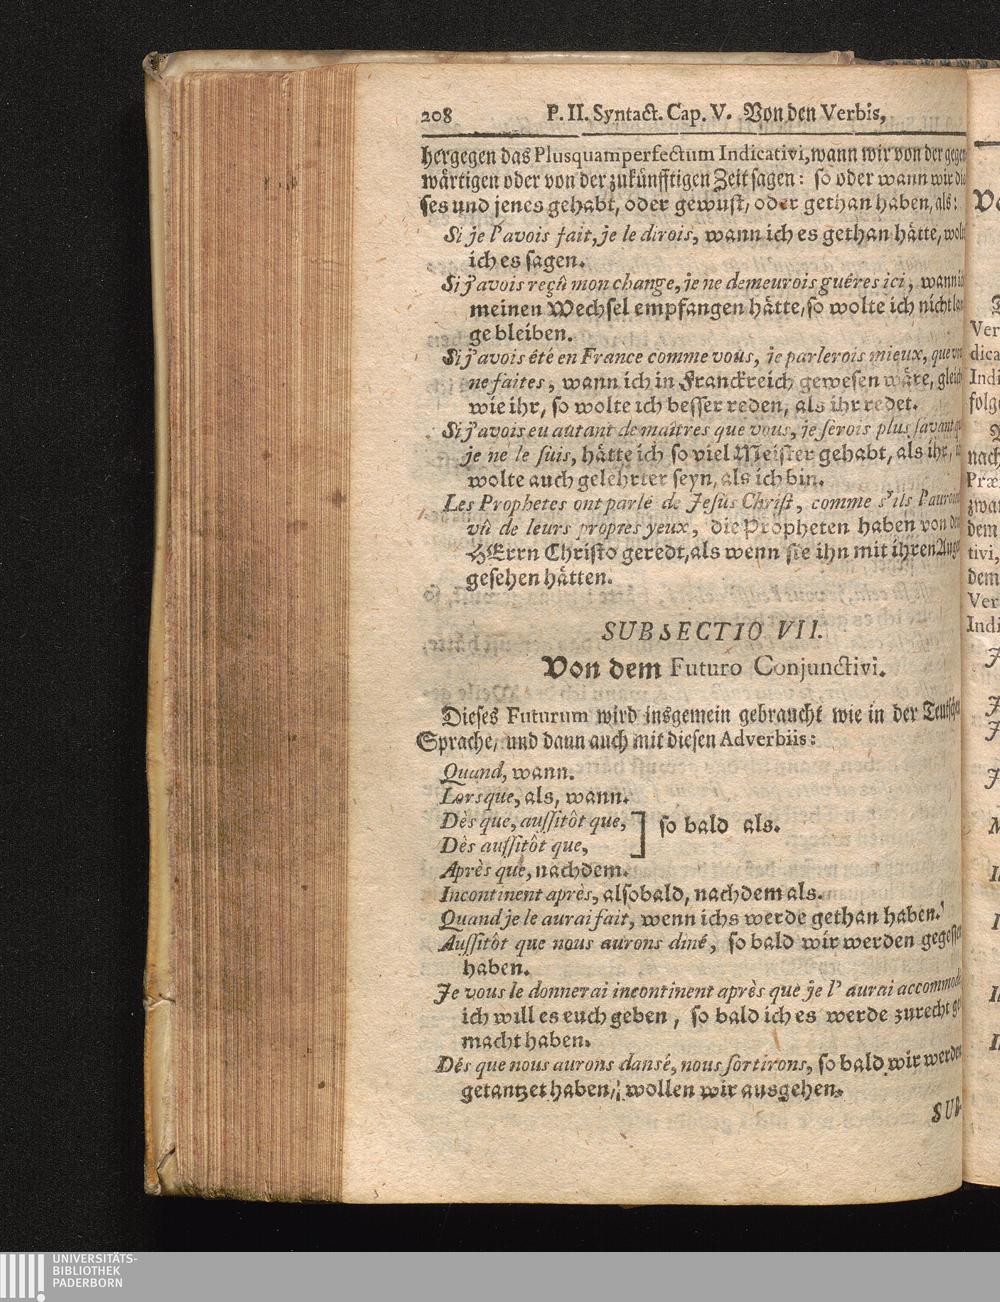 208 P. II. Syntact. Cap. V. Von den Verbis,
hergegen das Plusquamperfectum Indicativi, wann wir von der gegen
wärtigen oder von der zukünfftigen Zeit sagen: so oder wann wir die
ses und jenes gehabt, oder gewust, oder gethan haben, als:
Si je l'avois fait, je le dirois, wann ich es gethan hätte, wolt
ich es sagen.
Si j'avois reçû mon change, je ne demeurois guéres ici, wann ich
meinen Wechsel empfangen hätte, so wolte ich nicht lan
ge bleiben.
Si j'avois été en France comme vous, je parlerois mieux, que vous
ne faites, wann ich in Franckreich gewesen wäre, gleich
wie ihr, so wolte ich besser reden, als ihr redet.
Si j'avois eu autant de maîtres que vous, je serois plus savant q
je ne le suis, hätte ich so viel Meister gehabt, als ihr,
wolte auch gelehrter seyn, als ich bin.
Les Prophetes ont parlé de Jesus Christ, comme s'ils l'auroi
vû de leurs propres yeux, die Propheten haben von dem
HErrn Christo geredt, als wenn sie ihn mit ihren Auge
gesehen hätten.
SUBSECTIO VII.
Von dem Futuro Conjunctivi.
Dieses Futurum wird insgemein gebraucht wie in der Teutschen
Sprache, und dann auch mit diesen Adverbiis:
Quand, wann.
Lorsque, als, wann.
Dès que, aussitôt que, ] so bald als.
Dès aussitôt que,
Après que, nachdem.
Incontinent après, alsobald, nachdem als.
Quand je le aurai fait, wenn ichs werde gethan haben.
Aussitôt que nous aurons diné, so bald wir werden gegessen
haben.
Je vous le donnerai incontinent après que je l' aurai accommodé
ich will es euch geben, so bald ich es werde zurecht ge
macht haben.
Dés que nous aurons dansé, nous sortirons, so bald wir werden
getantzet haben, wollen wir ausgehen.
SUB-
Ver
dica
Indi
folge
nach
Præ
zwar
dem
tivi,
dem
Ver
Indi
UNIVERSITÄTS-
BIBLIOTHEK
PADERBORN